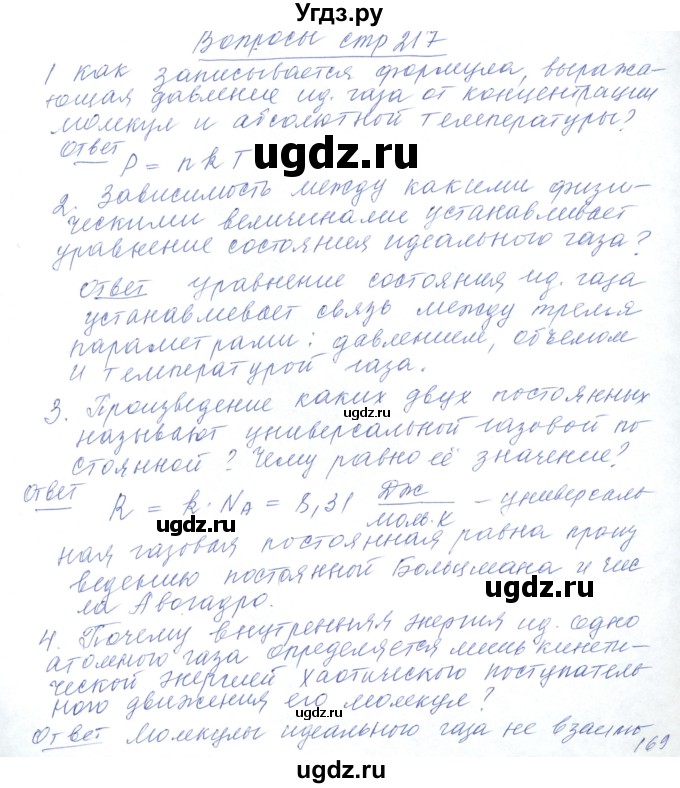 Угдз.ру
Вопросы стр 217
1 Как записывается формула, выража-
ющая давление ид. газа от концентрации
молекул и абсолютной температуры?
Ответ
P = nkT
ugdz.ru
2. Зависимость между какими физи-
ческими величинами устанавливает
уравнение состояния идеального газа?
Ответ уравнение состояния ид. газа
устанавливает связь между тремя
параметрами: давлением, объемом
и температурой газа.
ugdz.ru
3. Произведение каких двух постоянных
ugdz.ru
называют универсальной газовой по
стоянной? Чему равно её значение?
Ответ R = k · NA = 8,31 Дж/моль·К – универсаль
ugdz.ru
ugdz.ru
ная газовая постоянная равна произ
ведению постоянной Больцмана и чис
ла Авогадро.
ugdz.ru
4. Почему внутренняя энергия ид. одно
атомного газа определяется лишь кинети-
ческой энергией хаотического поступатель
ного движения его молекул?
ugdz.ru
Ответ Молекулы идеального газа не взаимо
169
ugdz.ru